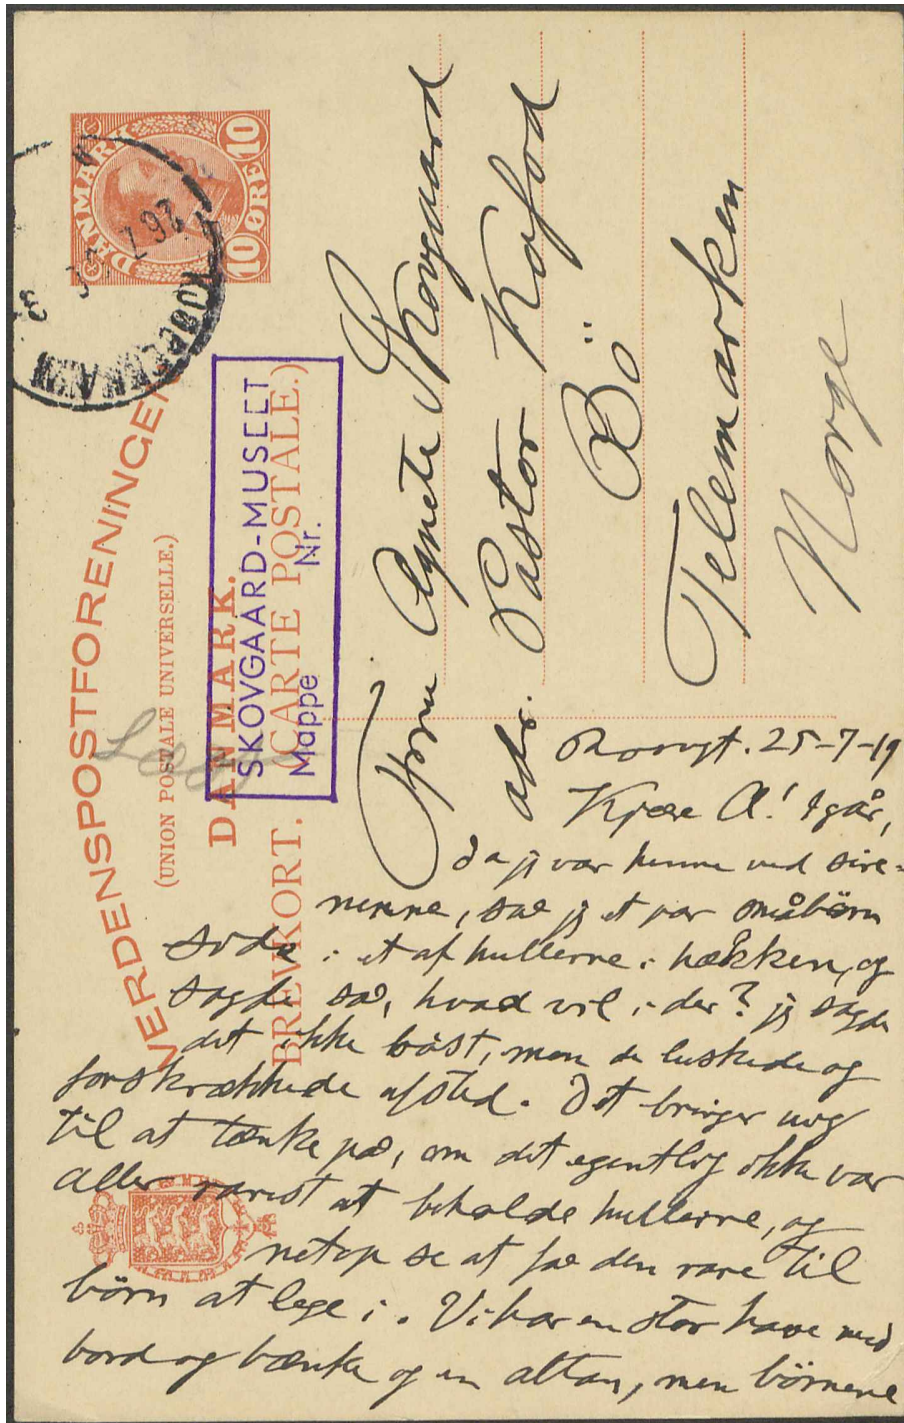 VERDENSPOSTFORENINGEN
(UNION POSTALE UNIVERSELLE.)
DANMARK.
BREVKORT. (CARTE POSTALE.)
DANMARK
10 ØRE 10
KJØBENHAVN
26.7
SKOVGAARD-MUSEET
Mappe Nr.
Fru Agnete Skovgaard
adr. Pastor Kofod
Bö
Telemarken
Norge
25-7-19
Kjære A! Igår,
da jeg var henne ved sire-
nerne, sae jeg et par småbörn
sidde i et af hullerne i hækken, og
sagde så, hvad vil i der? jeg sagde
det ikke båst, men de luskede og
forskrækkede afsted. Det bringer mig
til at tænke på, om det egentlig ikke var
aller rarest at beholde hullerne, og
netop se at fae den rare til
börn at lege i. Vi har en stor have med
bord og bænke og en altan, men börnene